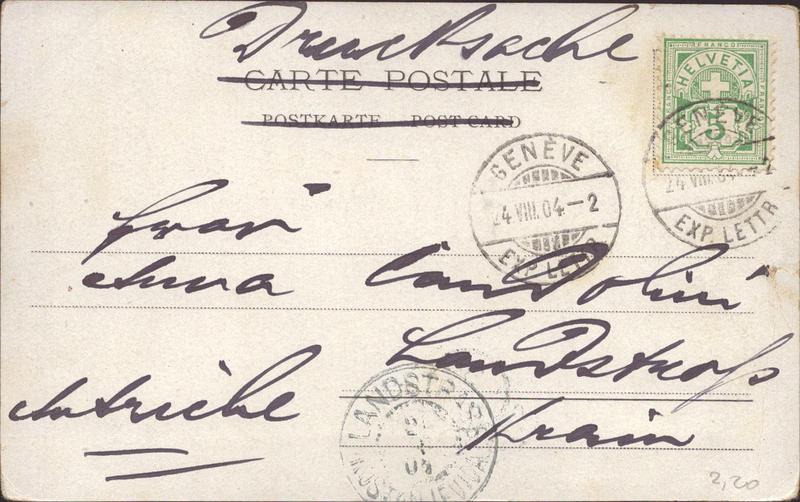 Drucksache
CARTE POSTALE
POSTKARTE POST CARD
FRANCO
HELVETIA
5
GENÈVE
24 VIII.04-2
EXP. LETTR
GENÈVE
24 VIII.04-2
EXP. LETTR
Frau
Anna
Landstrass
Autriche
Krain
LANDSTRASS
2,20